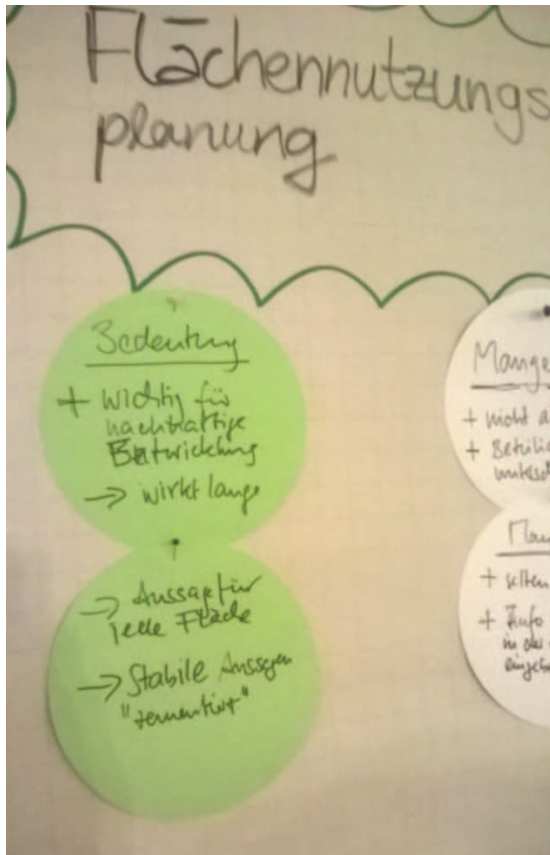 Flächennutzungs
planung
Bedeutung
+ wichtig für
nachhaltige
Entwicklung
→ wirkt lange
→ Aussage für
jede Fläche
→ Stabile Aussagen
"zementiert"
Mange
+ nicht a
+ Beteili
Man
+ selten
+ Info
in der